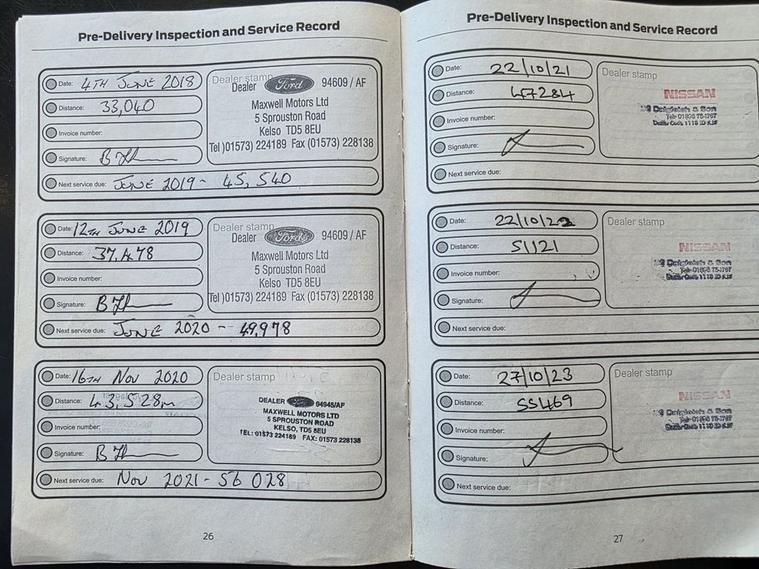 Pre-Delivery Inspection and Service Record
Date: 4TH JUNE 2018
Distance: 33,040
Invoice number:
Signature:
Next service due: JUNE 2019 - 45,540
Dealer stamp
Dealer Ford 94609 / AF
Maxwell Motors Ltd
5 Sprouston Road
Kelso TD5 8EU
Tel )01573) 224189 Fax (01573) 228138
Date: 12TH JUNE 2019
Distance: 37,478
Invoice number:
Signature:
Next service due: JUNE 2020 - 49,978
Dealer stamp
Dealer Ford 94609 / AF
Maxwell Motors Ltd
5 Sprouston Road
Kelso TD5 8EU
Tel )01573) 224189 Fax (01573) 228138
Date: 16TH NOV 2020
Distance: 43,528m
Invoice number:
Signature:
Next service due: NOV 2021 - 56 028
Dealer stamp
DEALER Ford 94945/AF
MAXWELL MOTORS LTD
5 SPROUSTON ROAD
KELSO, TD5 8EU
TEL: 01573 224189 FAX: 01573 228138
26
Pre-Delivery Inspection and Service Record
Date: 22/10/21
Distance: 47284
Invoice number:
Signature:
Next service due:
Dealer stamp
NISSAN
& Son
Date: 22/10/22
Distance: 51121
Invoice number:
Signature:
Next service due:
Dealer stamp
NISSAN
& Son
Date: 27/10/23
Distance: 55469
Invoice number:
Signature:
Next service due:
Dealer stamp
NISSAN
& Son
27